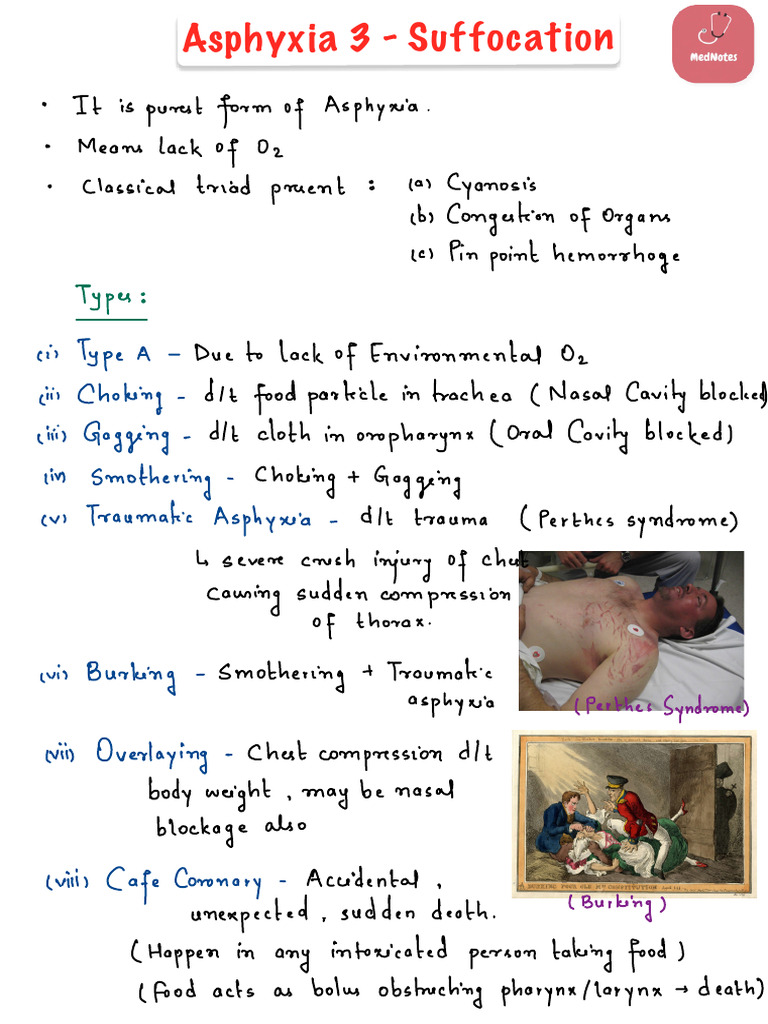 Asphyxia 3 - Suffocation
MedNotes
• It is purest form of Asphyxia.
• Means lack of O2
• Classical triad present : (a) Cyanosis
(b) Congestion of Organs
(c) Pin point hemorrhage
Types :
(i) Type A - Due to lack of Environmental O2
(ii) Choking - d/t food particle in trachea ( Nasal Cavity blocked)
(iii) Gagging - d/t cloth in oropharynx ( Oral Cavity blocked )
(iv) Smothering - Choking + Gagging
(v) Traumatic Asphyxia - d/t trauma ( Perthes syndrome)
↳ severe crush injury of chest
causing sudden compression
of thorax.
(vi) Burking - Smothering + Traumatic
asphyxia
(Perthes Syndrome)
(vii) Overlaying - Chest compression d/t
body weight , may be nasal
blockage also
(viii) Cafe Coronary - Accidental ,
unexpected , sudden death.
(Burking)
(Happen in any intoxicated person taking food )
(food acts as bolus obstructing pharynx/larynx → death)